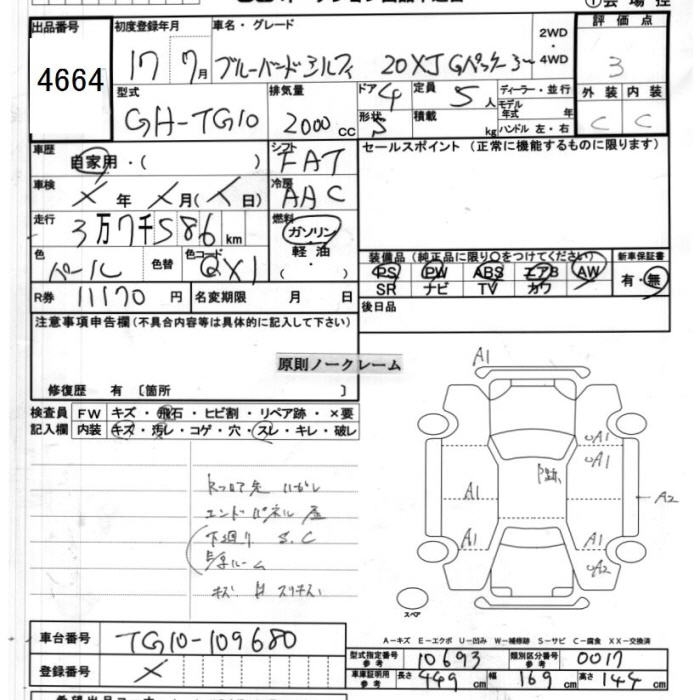 ① 会場控
出品番号 初度登録年月 車名・グレード 2WD・4WD 評価点
4664 17 7月 ブルーバードシルフィ 20XJ Gパッケージ 3
型式 排気量 ドア 定員 ディーラー・並行 外装 内装
GH-TG10 2000cc 4 5人 モデル年式 年 C C
形状 積載 kg ハンドル 左・右
5
車歴 シフト セールスポイント (正常に機能するものに限ります)
自家用・( ) FAT
車検 冷房
年 月( 日) AAC
走行 燃料
3万7千586km ガソリン・軽油・( )
色 色替 色コード 装備品 (純正品に限り○をつけてください) 新車保証書
パール QX1 PS PW ABS エアB AW 有・無
SR ナビ TV カワ
R券 11170円 名変期限 月 日 後日品
注意事項申告欄(不具合内容等は具体的に記入して下さい)
原則ノークレーム
修復歴 有 〔箇所 〕
検査員 FW キズ・飛石・ヒビ割・リペア跡・×要
記入欄 内装 キズ・汚レ・コゲ・穴・スレ・キレ・破レ
A1
A1
A1
P跡
A1
A2
A1
A1
A2
エンドパネル
下廻り S.C
スペア
A-キズ E-エクボ U-凹み W-補修跡 S-サビ C-腐食 XX-交換済
車台番号 TG10-109680
型式指定番号 参考 10693 類別区分番号 参考 0017
登録番号 ×
車庫証明用 参考 長さ 449cm 幅 169cm 高さ 144cm